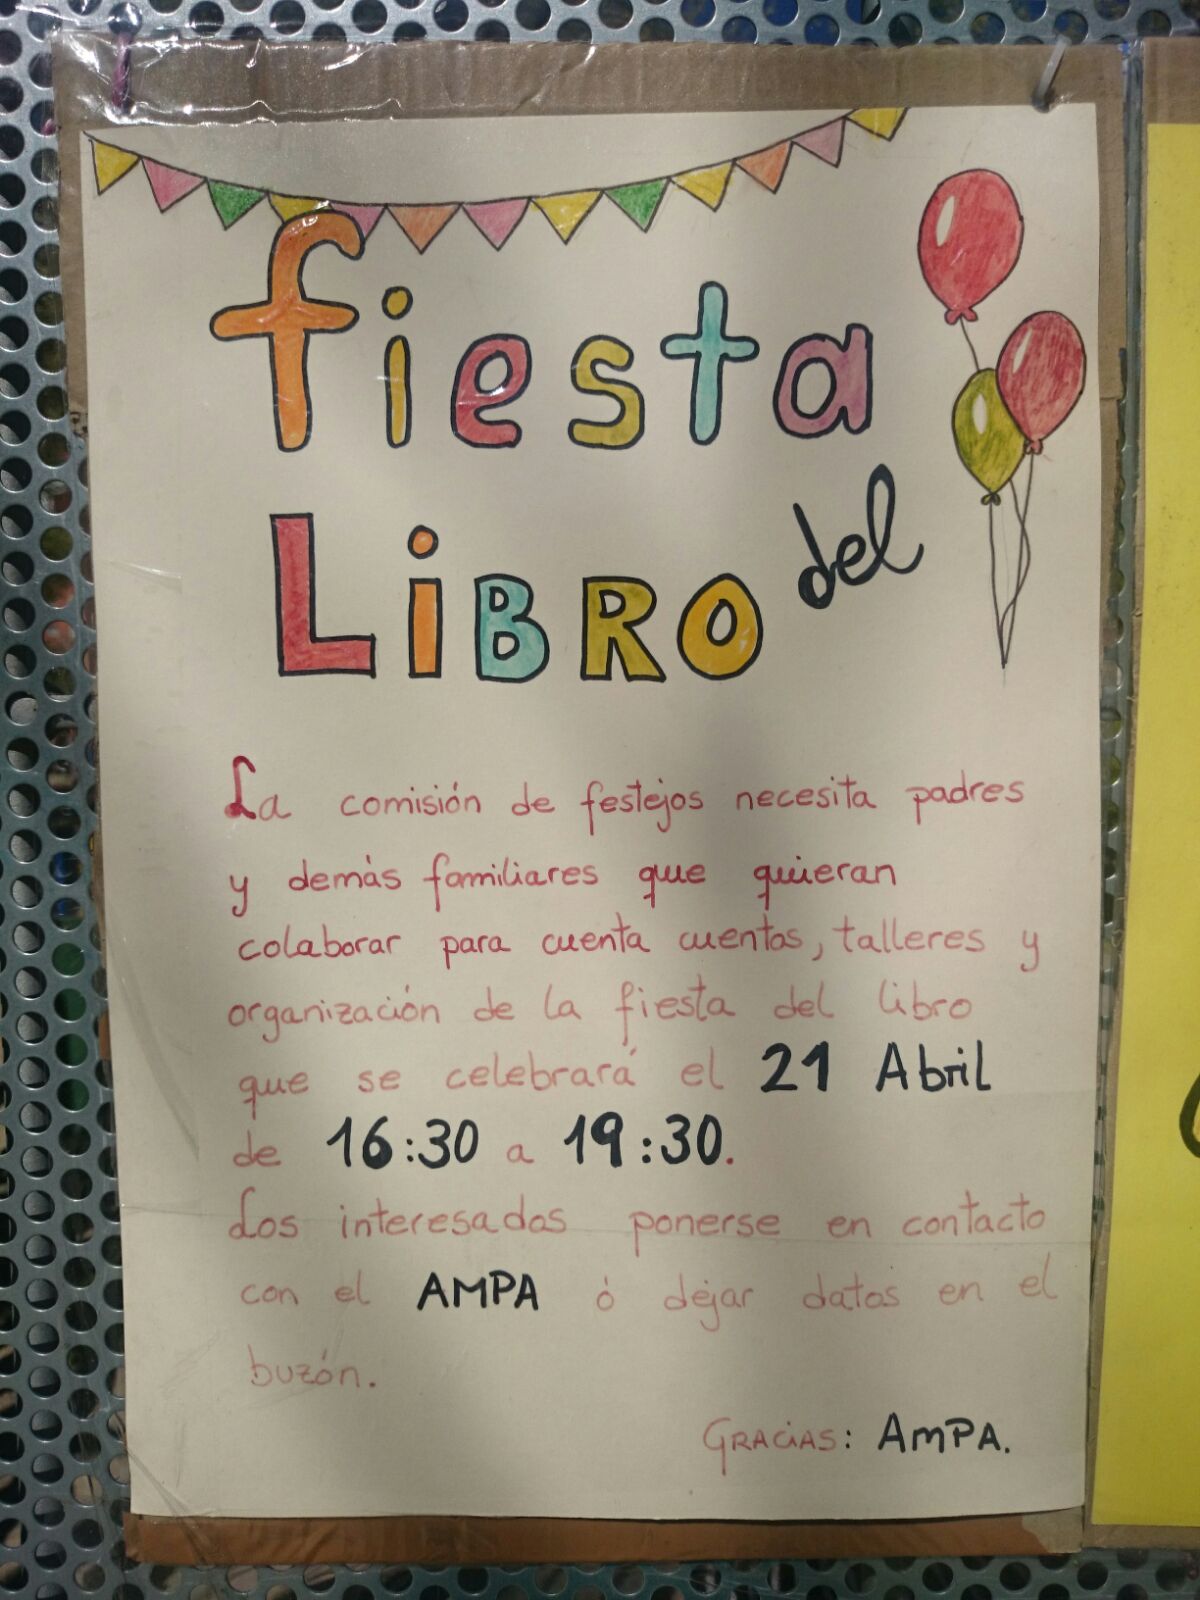 fiesta
LiBRO del
La comisión de festejos necesita padres
y demàs familiares que quieran
colaborar para cuenta cuentos, talleres y
organización de la fiesta del libro
que se celebrará el 21 Abril
de 16:30 a 19:30.
Los interesados ponerse en contacto
con el AMPA ó dejar datos en el
buzón.
GRACiAS: AMPA.